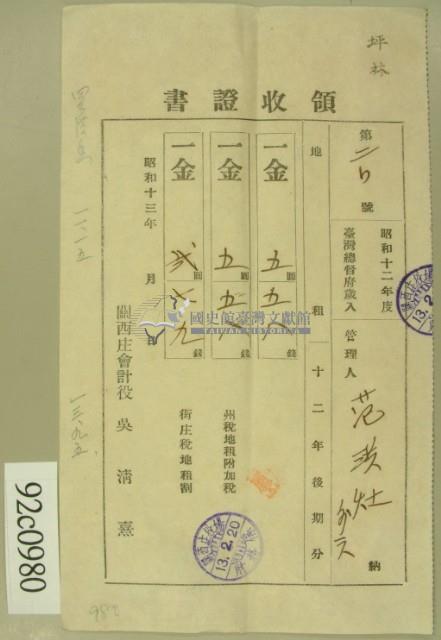 坪林
領收證書
第 號
昭和十二年度
臺灣總督府歲入
管理人 范 納
地租 十二年後期分
一金 五圓五八錢
一金 五圓五八錢
州稅地租附加稅
一金 貳圓 九錢
街庄稅地租割
昭和十三年 月 日
關西庄會計役 吳 清 熹
13.2.20
國史館臺灣文獻館
TAIWAN HISTORICA
一三、九五
92c0980